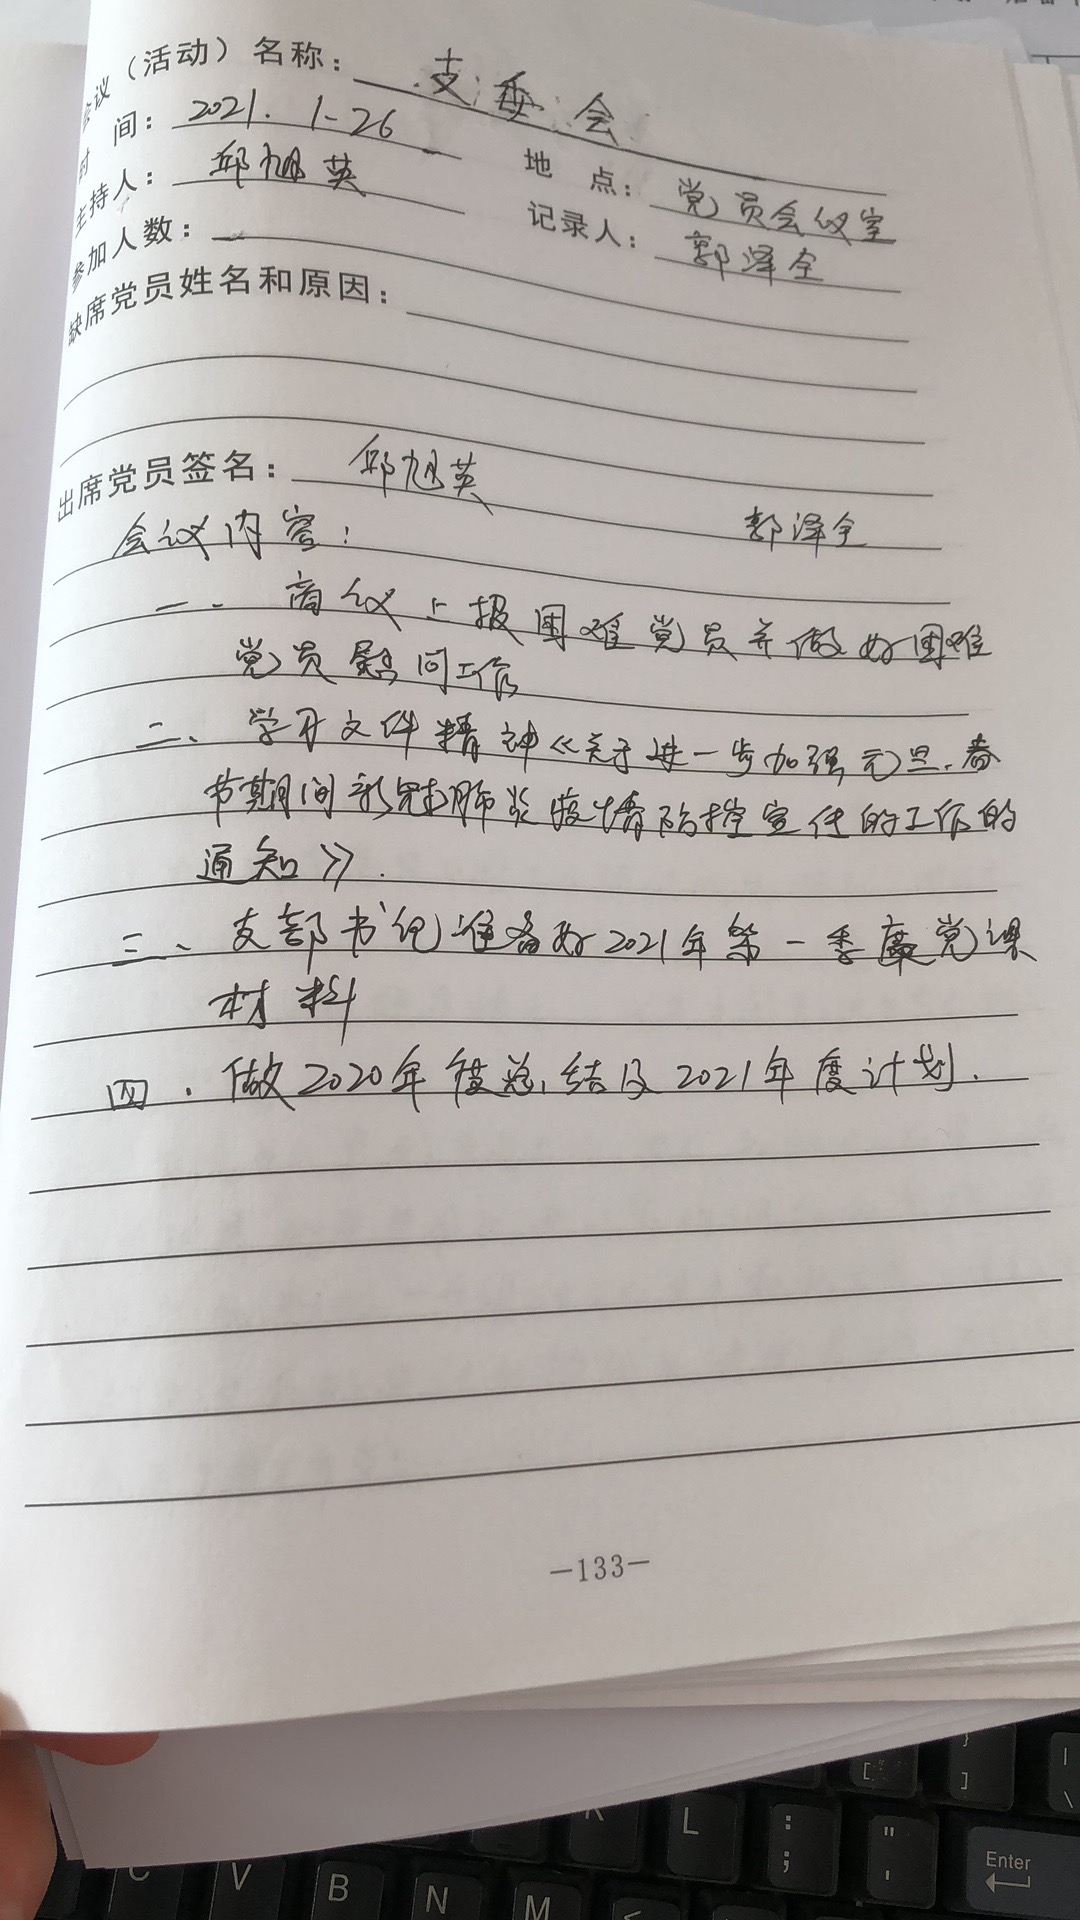 会议（活动）名称：支委会
时 间：2021.1-26 地 点：党员会议室
主持人：邱旭英 记录人：郭泽全
参加人数：
缺席党员姓名和原因：
出席党员签名：邱旭英 郭泽全
会议内容：
一、商议上报困难党员并做好困难
党员慰问工作
二、学习文件精神《关于进一步加强元旦、春
节期间新冠肺炎疫情防控宣传的工作的
通知》.
三、支部书记准备好2021年第一季廉党课
材料
四、做2020年度总结及2021年度计划.
—133—
K L : ; " ' Enter
C V B N M <
{ [ } ] | \